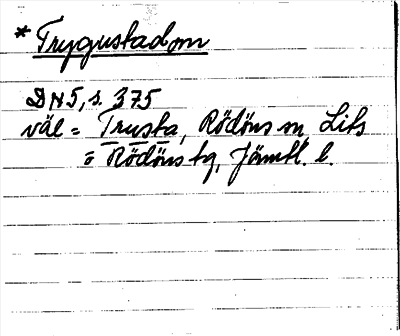 * Trygustadom
DN 5, s. 375
väl = Trusta, Rödöns sn, Lits
o Rödöns tg, Jämtl. l.